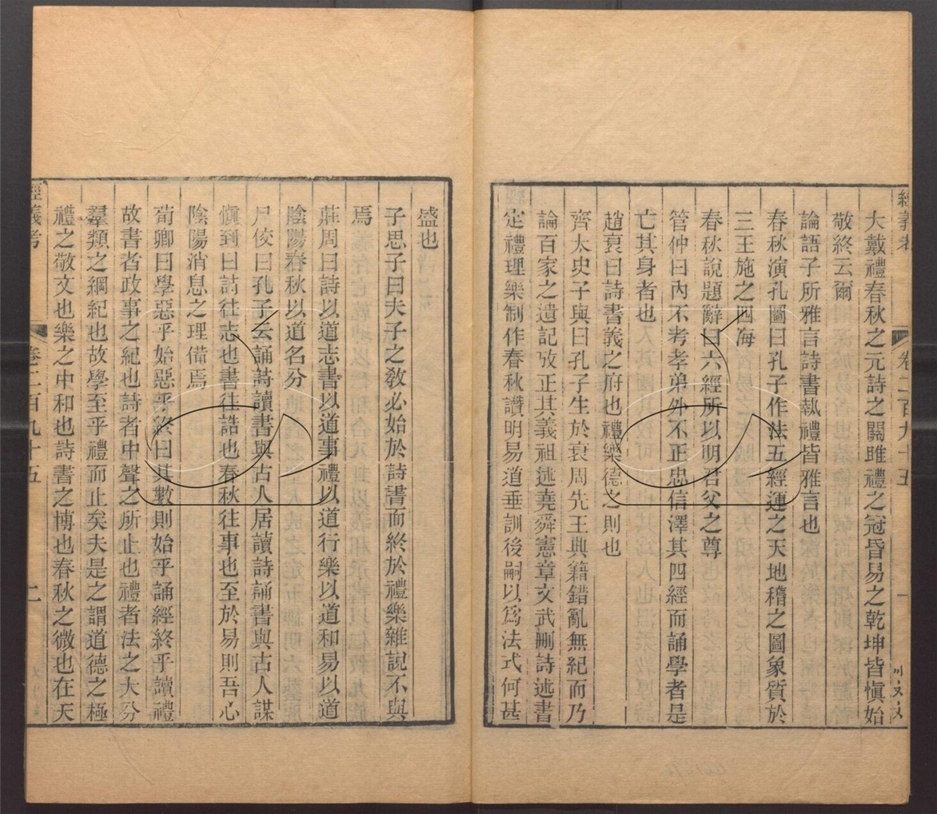 經義考 卷二百九十五
大戴禮春秋之元詩之關雎禮之冠昏易之乾坤皆慎始
敬終云爾
論語子所雅言詩書執禮皆雅言也
春秋演孔圖曰孔子作法五經運之天地稽之圖象質於
三王施之四海
春秋說題辭曰六經所以明君父之尊
管仲曰內不考孝弟外不正忠信澤其四經而誦學者是
亡其身者也
趙衰曰詩書義之府也禮樂德之則也
齊太史子與曰孔子生於衰周先王典籍錯亂無紀而乃
論百家之遺記攷正其義祖述堯舜憲章文武刪詩述書
定禮理樂制作春秋讚明易道垂訓後嗣以爲法式何甚
盛也
子思子曰夫子之敎必始於詩書而終於禮樂雜說不與
焉
莊周曰詩以道志書以道事禮以道行樂以道和易以道
陰陽春秋以道名分
尸佼曰孔子云誦詩讀書與古人居讀詩誦書與古人謀
愼到曰詩往志也書往誥也春秋往事也至於易則吾心
陰陽消息之理備焉
荀卿曰學惡乎始惡乎終曰其數則始乎誦經終乎讀禮
故書者政事之紀也詩者中聲之所止也禮者法之大分
羣類之綱紀也故學至乎禮而止矣夫是之謂道德之極
禮之敬文也樂之中和也詩書之博也春秋之微也在天
經義考 卷二百九十五 二